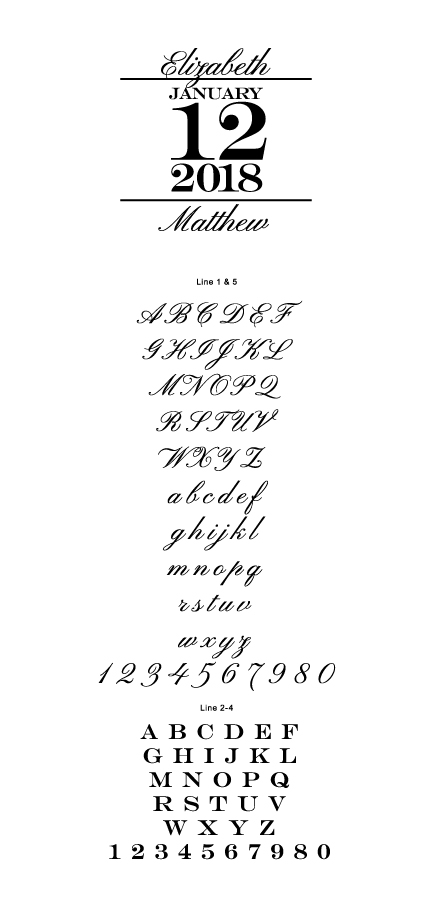 Elizabeth
JANUARY
12
2018
Matthew
Line 1 & 5
A B C D E F
G H I J K L
M N O P Q
R S T U V
W X Y Z
a b c d e f
g h i j k l
m n o p q
r s t u v
w x y z
1 2 3 4 5 6 7 9 8 0
Line 2-4
A B C D E F
G H I J K L
M N O P Q
R S T U V
W X Y Z
1 2 3 4 5 6 7 9 8 0